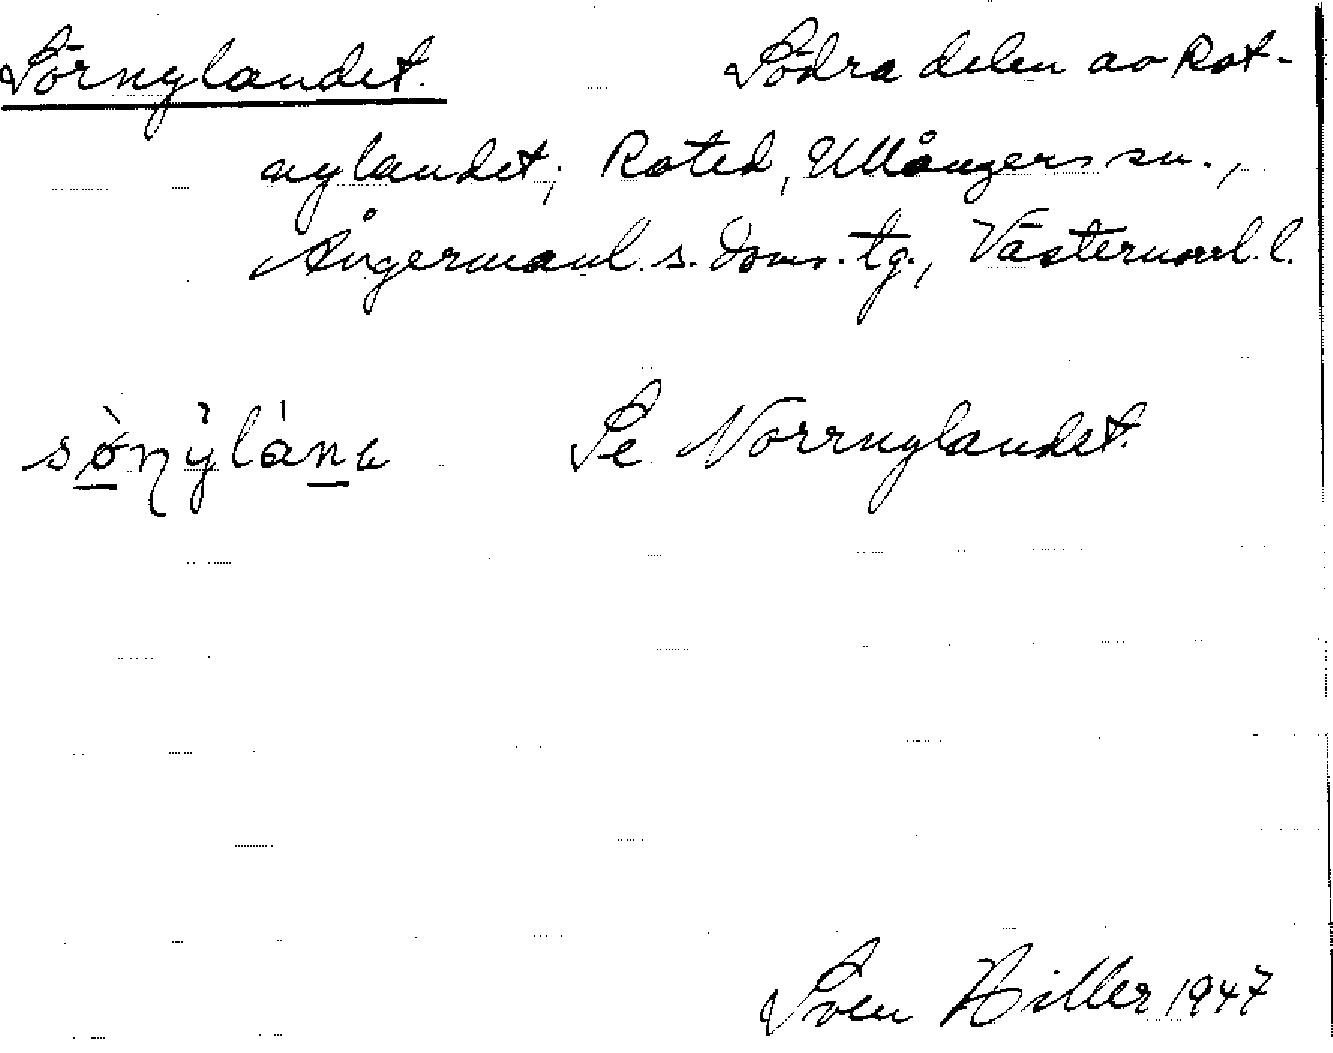 Sörnylandet. Södra delen av Rot-
nylandet; Roted, Ullångers sn.,
Ångermanl. s. doms. tg., Västernorrl. l.
Se Norrnylandet.
Sven Hiller 1947